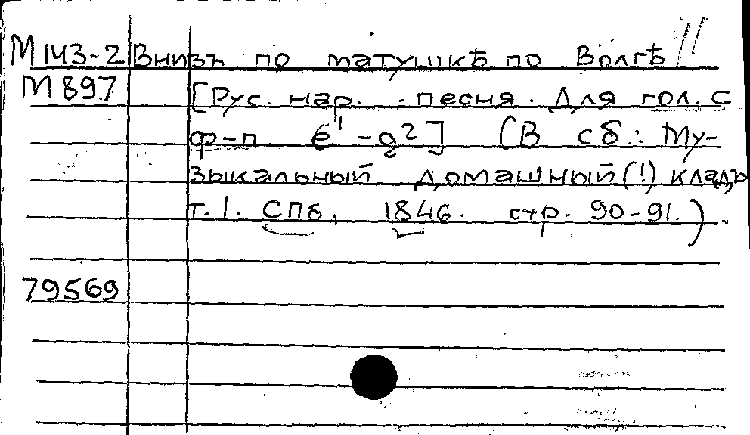 М 143-2 Внизъ по матушкѣ по Волгѣ //
М 897 [Рус. нар. песня. Для гол. с
ф-п e¹-g²] (В сб.: Му-
зыкальный домашный (!) кладъ
т. 1. СПб, 1846. стр. 90-91.)
79569